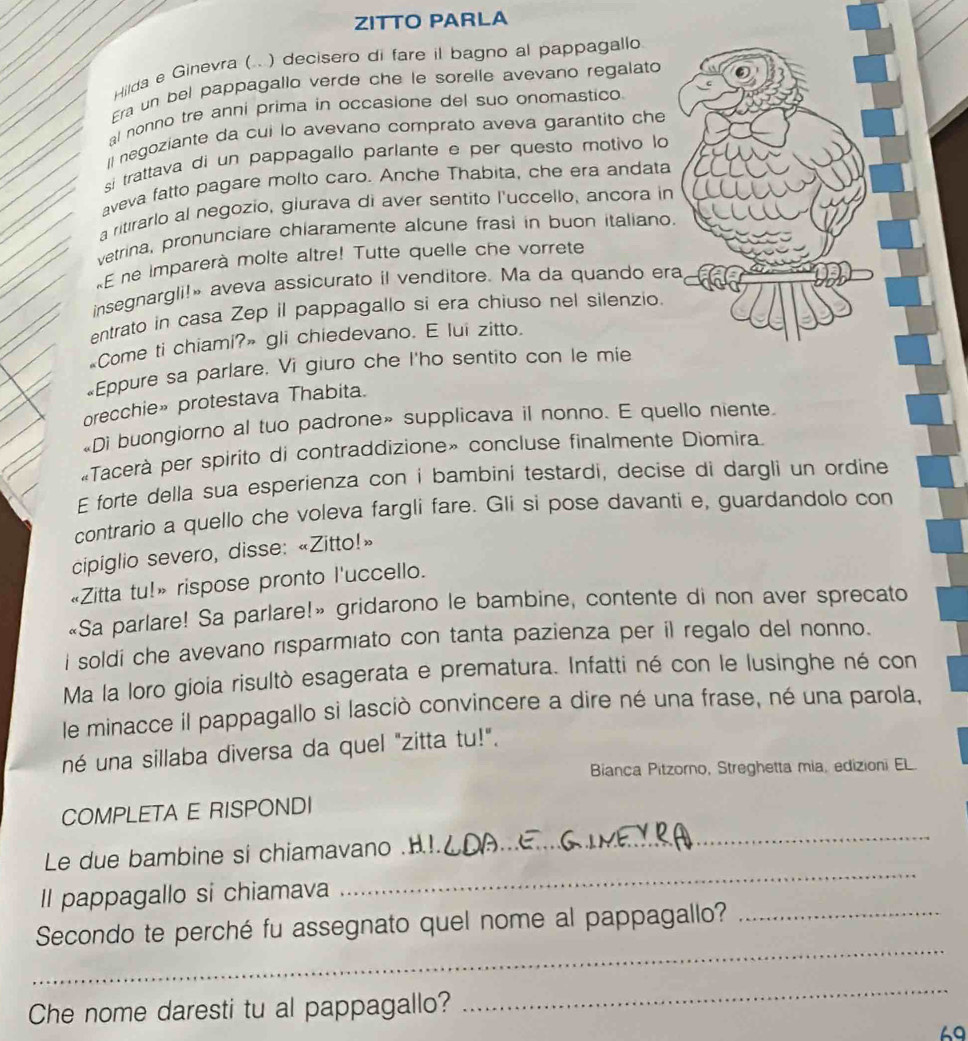 ZITTO PARLA
Hilda e Ginevra (...) decisero di fare il bagno al pappagallo.
Era un bel pappagallo verde che le sorelle avevano regalato
al nonno tre anni prima in occasione del suo onomastico.
Il negoziante da cui lo avevano comprato aveva garantito che
si trattava di un pappagallo parlante e per questo motivo lo
aveva fatto pagare molto caro. Anche Thabita, che era andata
a ritirarlo al negozio, giurava di aver sentito l'uccello, ancora in
vetrina, pronunciare chiaramente alcune frasi in buon italiano.
«E ne imparerà molte altre! Tutte quelle che vorrete
insegnargli!» aveva assicurato il venditore. Ma da quando era
entrato in casa Zep il pappagallo si era chiuso nel silenzio.
«Come ti chiami?» gli chiedevano. E lui zitto.
«Eppure sa parlare. Vi giuro che l'ho sentito con le mie
orecchie» protestava Thabita.
«Dì buongiorno al tuo padrone» supplicava il nonno. E quello niente.
«Tacerà per spirito di contraddizione» concluse finalmente Diomira.
E forte della sua esperienza con i bambini testardi, decise di dargli un ordine
contrario a quello che voleva fargli fare. Gli si pose davanti e, guardandolo con
cipiglio severo, disse: «Zitto!»
«Zitta tu!» rispose pronto l'uccello.
«Sa parlare! Sa parlare!» gridarono le bambine, contente di non aver sprecato
i soldi che avevano risparmiato con tanta pazienza per il regalo del nonno.
Ma la loro gioia risultò esagerata e prematura. Infatti né con le lusinghe né con
le minacce il pappagallo si lasciò convincere a dire né una frase, né una parola,
né una sillaba diversa da quel "zitta tu!".
Bianca Pitzorno, Streghetta mia, edizioni EL.
COMPLETA E RISPONDI
Le due bambine si chiamavano HILDA E GINEVRA
Il pappagallo si chiamava
Secondo te perché fu assegnato quel nome al pappagallo?
Che nome daresti tu al pappagallo?
69